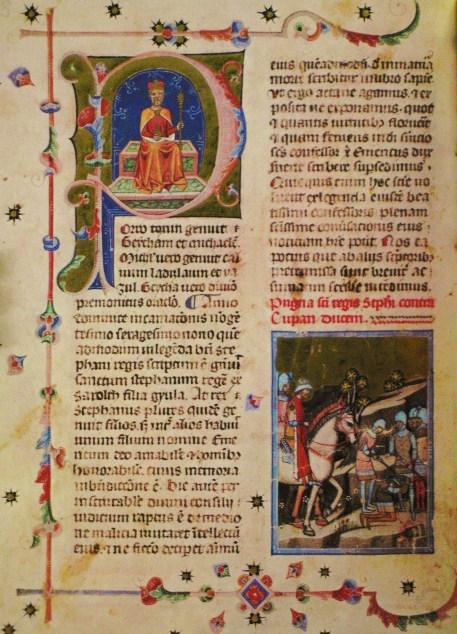 Porro toxun genuit
Geicham et michaelē.
Michael vero genuit cal
uum ladizlaum et va
zul. Geicha vero diuino
premonitus oraculo. Anno
dominice incarnationis nōgē
tesimo sexagesimo nono que
admodum in legēda bti̅ Ste
phani regis scriptum ē genuit
sanctum stephanum regē ex
Saroltu filia gyula. At rex
Stephanus plures quidē ge
nuit filios. sȝ inter alios habuit
unum filium nomine Eme
ricum deo amabilē ⁊ hominibꝫ
honorabilē. cuius memoria
in bn̄dictione ē. Hic autē per
inscrutabile diuini consilii
iudicium raptus ē de medio
ne malicia mutaret ītellectū
eius. ⁊ ne fictio deciperet aīmā
eius quēadmodum d̓ inmatura
morte scribitur in libro sapiē.
Ne ergo actū agamus. ⁊ ex
posita ne exponamus. quot
⁊ quantis uirtutibꝫ floruerit
⁊ quam feruens in dī seruicio
scs confessor xi Emericus dux
fuerit scribere supersedimus.
Quicumqꝫ enim hec scire uo
luerit ex legenda eiusdē bea
tissimi confessoris plenam
sctissime conuersationis eius
noticiam habere poterit. Nos ea
potius que ab aliis scriptoribꝫ
pretermissa sunt breuiter ac
summatim scribere intēdimus.
Pugna sci̅ regis Stephi contra
Cupan ducem.